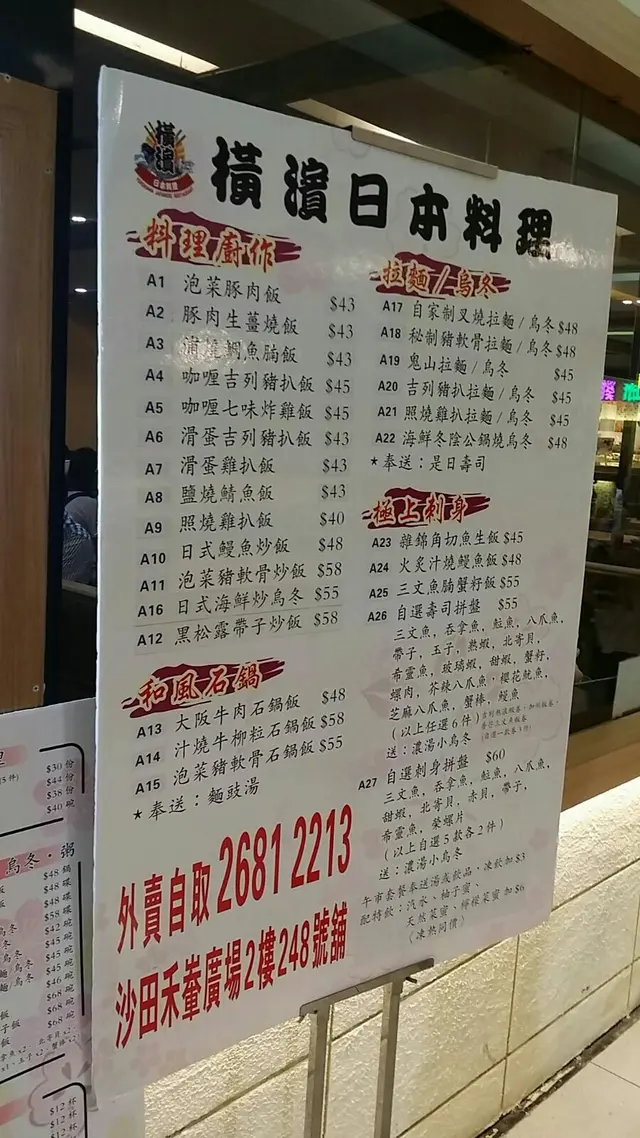 橫濱
日本料理
橫濱日本料理
料理廚作
A1 泡菜豚肉飯 $43
A2 豚肉生薑燒飯 $43
A3 蒲燒鯛魚腩飯 $43
A4 咖喱吉列豬扒飯 $45
A5 咖喱七味炸雞飯 $45
A6 滑蛋吉列豬扒飯 $43
A7 滑蛋雞扒飯 $43
A8 鹽燒鯖魚飯 $43
A9 照燒雞扒飯 $40
A10 日式鰻魚炒飯 $48
A11 泡菜豬軟骨炒飯 $58
A16 日式海鮮炒烏冬 $55
A12 黑松露帶子炒飯 $58
和風石鍋
A13 大阪牛肉石鍋飯 $48
A14 汁燒牛柳粒石鍋飯 $58
A15 泡菜豬軟骨石鍋飯 $55
★奉送：麵豉湯
拉麵/烏冬
A17 自家制叉燒拉麵/烏冬 $48
A18 秘制豬軟骨拉麵/烏冬 $48
A19 鬼山拉麵/烏冬 $45
A20 吉列豬扒拉麵/烏冬 $45
A21 照燒雞扒拉麵/烏冬 $45
A22 海鮮冬陰公鍋燒烏冬 $48
★奉送：是日壽司
極上刺身
A23 雜錦角切魚生飯 $45
A24 火炙汁燒鰻魚飯 $48
A25 三文魚腩蟹籽飯 $55
A26 自選壽司拼盤 $55
三文魚, 吞拿魚, 魟魚, 八爪魚,
帶子, 玉子, 熟蝦, 北寄貝,
希靈魚, 玻璃蝦, 甜蝦, 蟹籽,
螺肉, 芥辣八爪魚, 櫻花魷魚,
芝麻八爪魚, 蟹棒, 鰻魚
(以上任選6件)
送：濃湯小烏冬
A27 自選刺身拼盤 $60
三文魚, 吞拿魚, 魟魚, 八爪魚,
甜蝦, 北寄貝, 赤貝, 帶子,
希靈魚, 榮螺片
(以上自選5款各2件)
送：濃湯小烏冬
午市套餐奉送湯或飲品、凍飲加$3
配特飲：汽水、柚子蜜、
天然菜蜜、檸檬菜蜜 加$6
(凍熱同價)
外賣自取 2681 2213
沙田禾輋廣場2樓248號舖
$30 份
$44 份
$38 份
$40 碗
烏冬·粥
$48 鍋
$48 碟
$58 碟
$58 碟
$42 碗
$45 碗
$45 碗
$45 碗
$46 碗
$68 碗
$68 碗
$68 碗
$12 杯
$12 杯
$12 杯